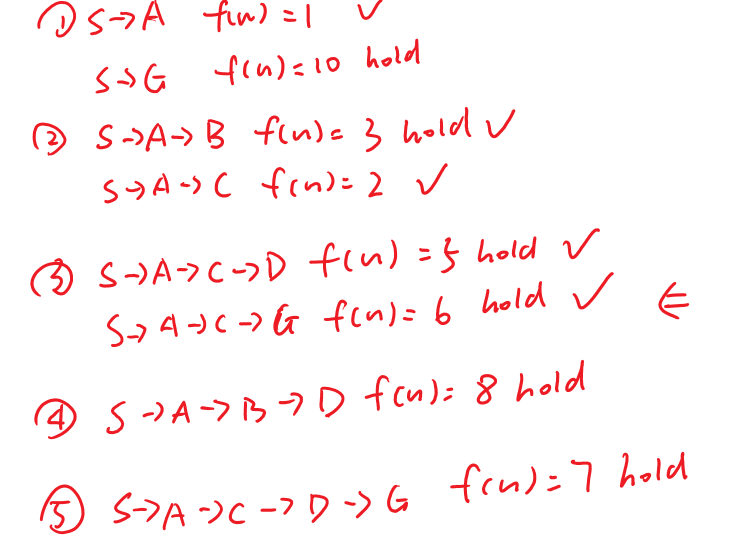 ① S→A f(n)=1 ✓
S→G f(n)=10 hold
② S→A→B f(n)=3 hold ✓
S→A→C f(n)=2 ✓
③ S→A→C→D f(n)=5 hold ✓
S→A→C→G f(n)=6 hold ✓ ⋲
④ S→A→B→D f(n)=8 hold
⑤ S→A→C→D→G f(n)=7 hold